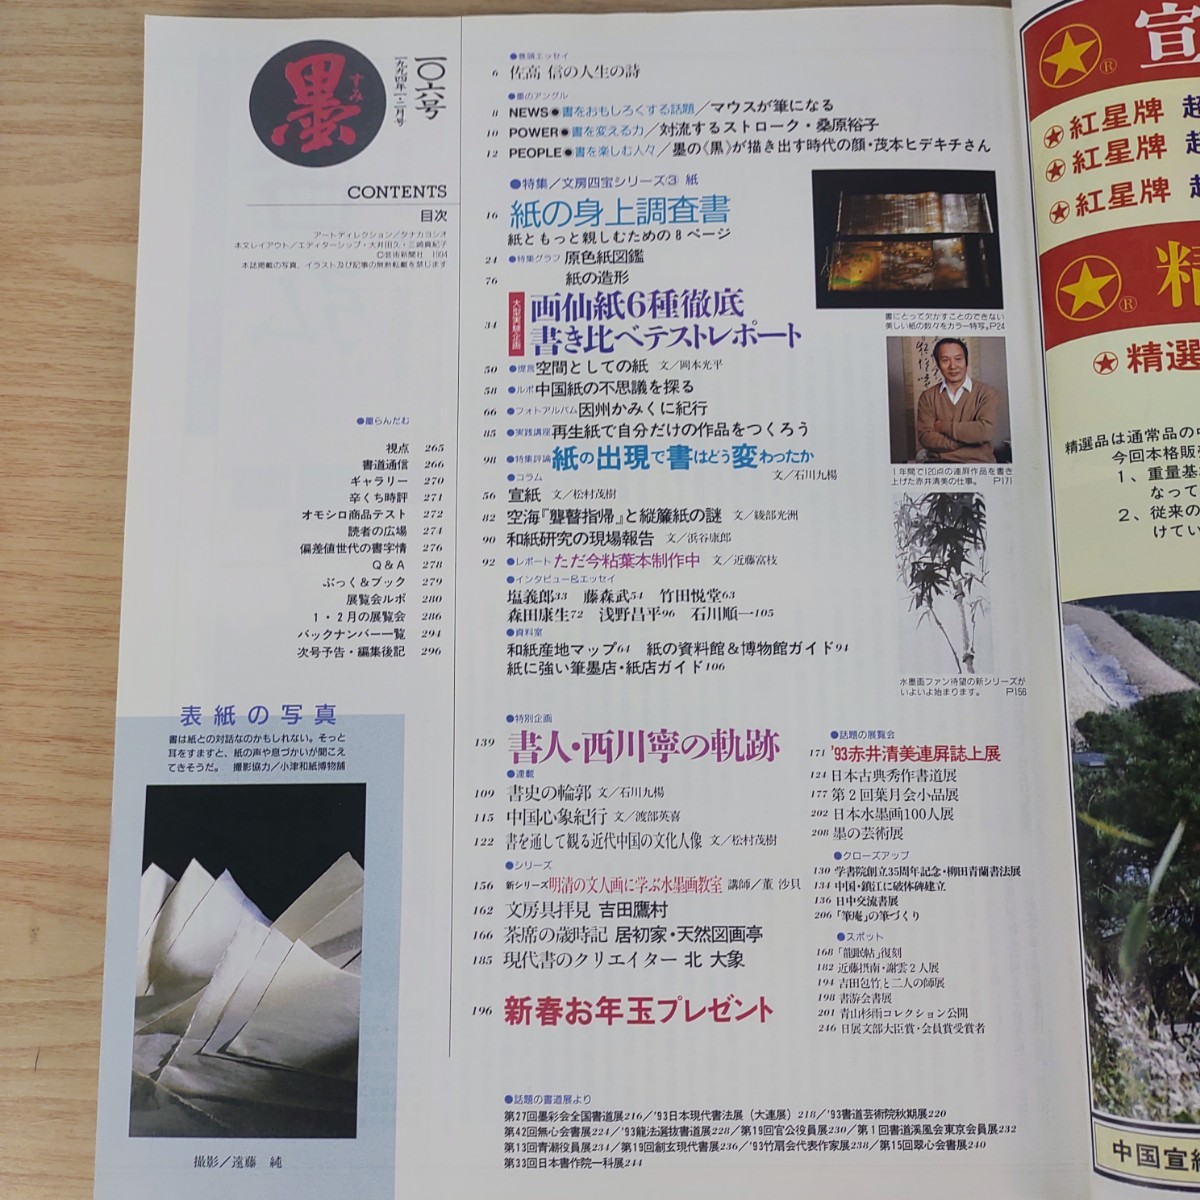 墨
すみ
一〇六号
一九九四年一・二月号
CONTENTS
目次
アートディレクション／タナカヨシオ
本文レイアウト／エディターシップ・大井田久・三崎真紀子
©芸術新聞社 1994
本誌掲載の写真、イラスト及び記事の無断転載を禁じます
●墨らんだむ
視点 265
書道通信 266
ギャラリー 270
辛くち時評 271
オモシロ商品テスト 272
読者の広場 274
偏差値世代の書字情 276
Q&A 278
ぶっく&ブック 279
展覧会ルポ 280
1・2月の展覧会 286
バックナンバー一覧 294
次号予告・編集後記 296
表紙の写真
書は紙との対話なのかもしれない。そっと
耳をすますと、紙の声や息づかいが聞こえ
てきそうだ。 撮影協力／小津和紙博物舗
撮影／遠藤 純
●巻頭エッセイ
6 佐高 信の人生の詩
●墨のアングル
8 NEWS●書をおもしろくする話題／マウスが筆になる
10 POWER●書を変える力／対流するストローク・桑原裕子
12 PEOPLE●書を楽しむ人々／墨の《黒》が描き出す時代の顔・茂本ヒデキチさん
●特集／文房四宝シリーズ③ 紙
16 紙の身上調査書
紙ともっと親しむための8ページ
24 ●特集グラフ 原色紙図鑑
76 紙の造形
34 大型実験企画 画仙紙6種徹底
書き比べテストレポート
50 ●提言 空間としての紙 文／岡本光平
58 ●ルポ 中国紙の不思議を探る
66 ●フォトアルバム 因州かみくに紀行
85 ●実践講座 再生紙で自分だけの作品をつくろう
98 ●特集評論 紙の出現で書はどう変わったか
文／石川九楊
●コラム
56 宣紙 文／松村茂樹
82 空海『聾瞽指帰』と縦簾紙の謎 文／綾部光洲
90 和紙研究の現場報告 文／浜谷康郎
92 ●レポート ただ今粘葉本制作中 文／近藤富枝
●インタビュー&エッセイ
塩義郎33 藤森武54 竹田悦堂63
森田康生72 浅野昌平96 石川順一105
●資料室
和紙産地マップ64 紙の資料館&博物館ガイド94
紙に強い筆墨店・紙店ガイド106
書にとって欠かすことのできない
美しい紙の数々をカラー特写。P24
1年間で120点の連屏作品を書き
上げた赤井清美の仕事。 P171
水墨画ファン待望の新シリーズが
いよいよ始まります。 P156
●特別企画
139 書人・西川寧の軌跡
●連載
109 書史の輪郭 文／石川九楊
115 中国心象紀行 文／渡部英喜
122 書を通して観る近代中国の文化人像 文／松村茂樹
●シリーズ
156 新シリーズ 明清の文人画に学ぶ水墨画教室 講師／董 沙貝
162 文房具拝見 吉田鷹村
166 茶席の歳時記 居初家・天然図画亭
185 現代書のクリエイター 北 大象
196 新春お年玉プレゼント
●話題の展覧会
171 '93赤井清美連屏誌上展
124 日本古典秀作書道展
177 第2回葉月会小品展
202 日本水墨画100人展
208 墨の芸術展
●クローズアップ
130 学書院創立35周年記念・柳田青蘭書法展
134 中国・鎮江に破体碑建立
136 日中交流書展
206 「筆庵」の筆づくり
●スポット
168 「龍眠帖」復刻
182 近藤摂南・謝雲2人展
194 吉田包竹と二人の師展
198 書游会書展
201 青山杉雨コレクション公開
246 日展文部大臣賞・会員賞受賞者
●話題の書道展より
第27回墨彩会全国書道展216／'93日本現代書法展（大連展）218／'93書道芸術院秋期展220
第42回無心会書展224／'93龍法選抜書道展228／第19回官公役員展230／第1回書道溪風会東京会員展232
第13回青潮役員展234／第19回創玄現代書展236／'93竹扇会代表作家展238／第15回翠心会書展240
第33回日本書作院一科展244
宣
®
紅星牌 超
紅星牌 超
紅星牌 超
®
精
精選
精選品は通常品の中
今回本格販
1、重量基
なって
2、従来の
けてい
中国宣紙